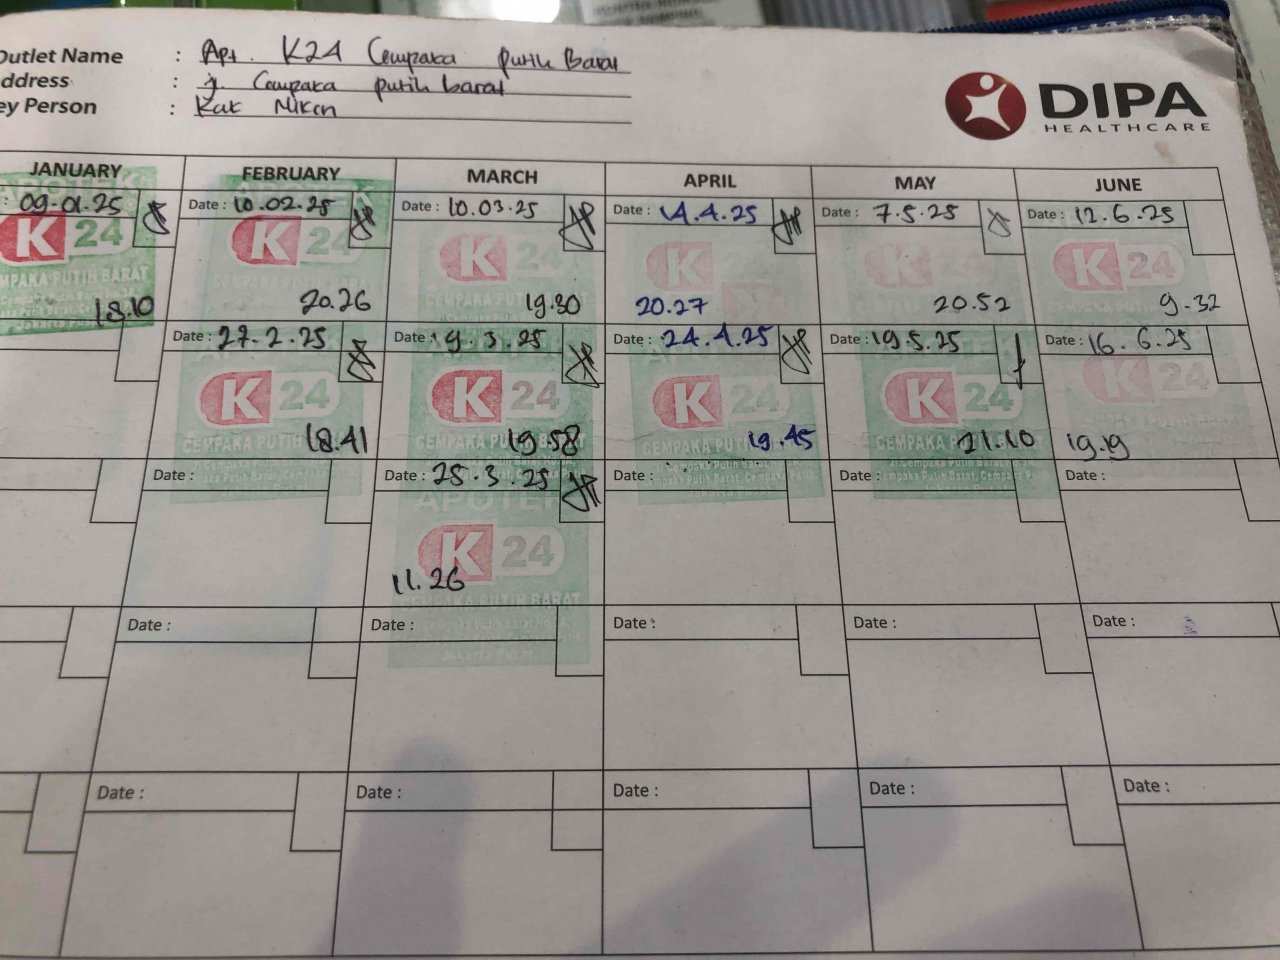 Outlet Name : Apt. K24 Cempaka putih Barat
Address : jl. Cempaka putih barat
Key Person : Kak Niken
DIPA
HEALTHCARE
JANUARY FEBRUARY MARCH APRIL MAY JUNE
: 09-01.25 Date : 10.02.25 Date : 10.03.25 Date : 14.4.25 Date : 7.5.25 Date : 12.6.25
K 24 K 24 K 24 K K K 24
CEMPAKA PUTIH BARAT
18.10 20.26 19.30 20.27 20.52 9.32
Date : 27.2.25 Date : 19.3.25 Date : 24.4.25 Date : 19.5.25 Date : 16.6.25
K 24 K 24 K 24 K 24 K 24
CEMPAKA PUTIH CEMPAKA PUTIH BARAT CEMPAKA PUTIH CEMPAKA PUTIH
18.41 19.58 19.45 21.10 19.19
Date : Date : 25.3.25 Date : Date : Date :
APOTEK
K 24
11.26
CEMPAKA PUTIH BARAT
Date : Date : Date : Date : Date :
Date : Date : Date : Date : Date :